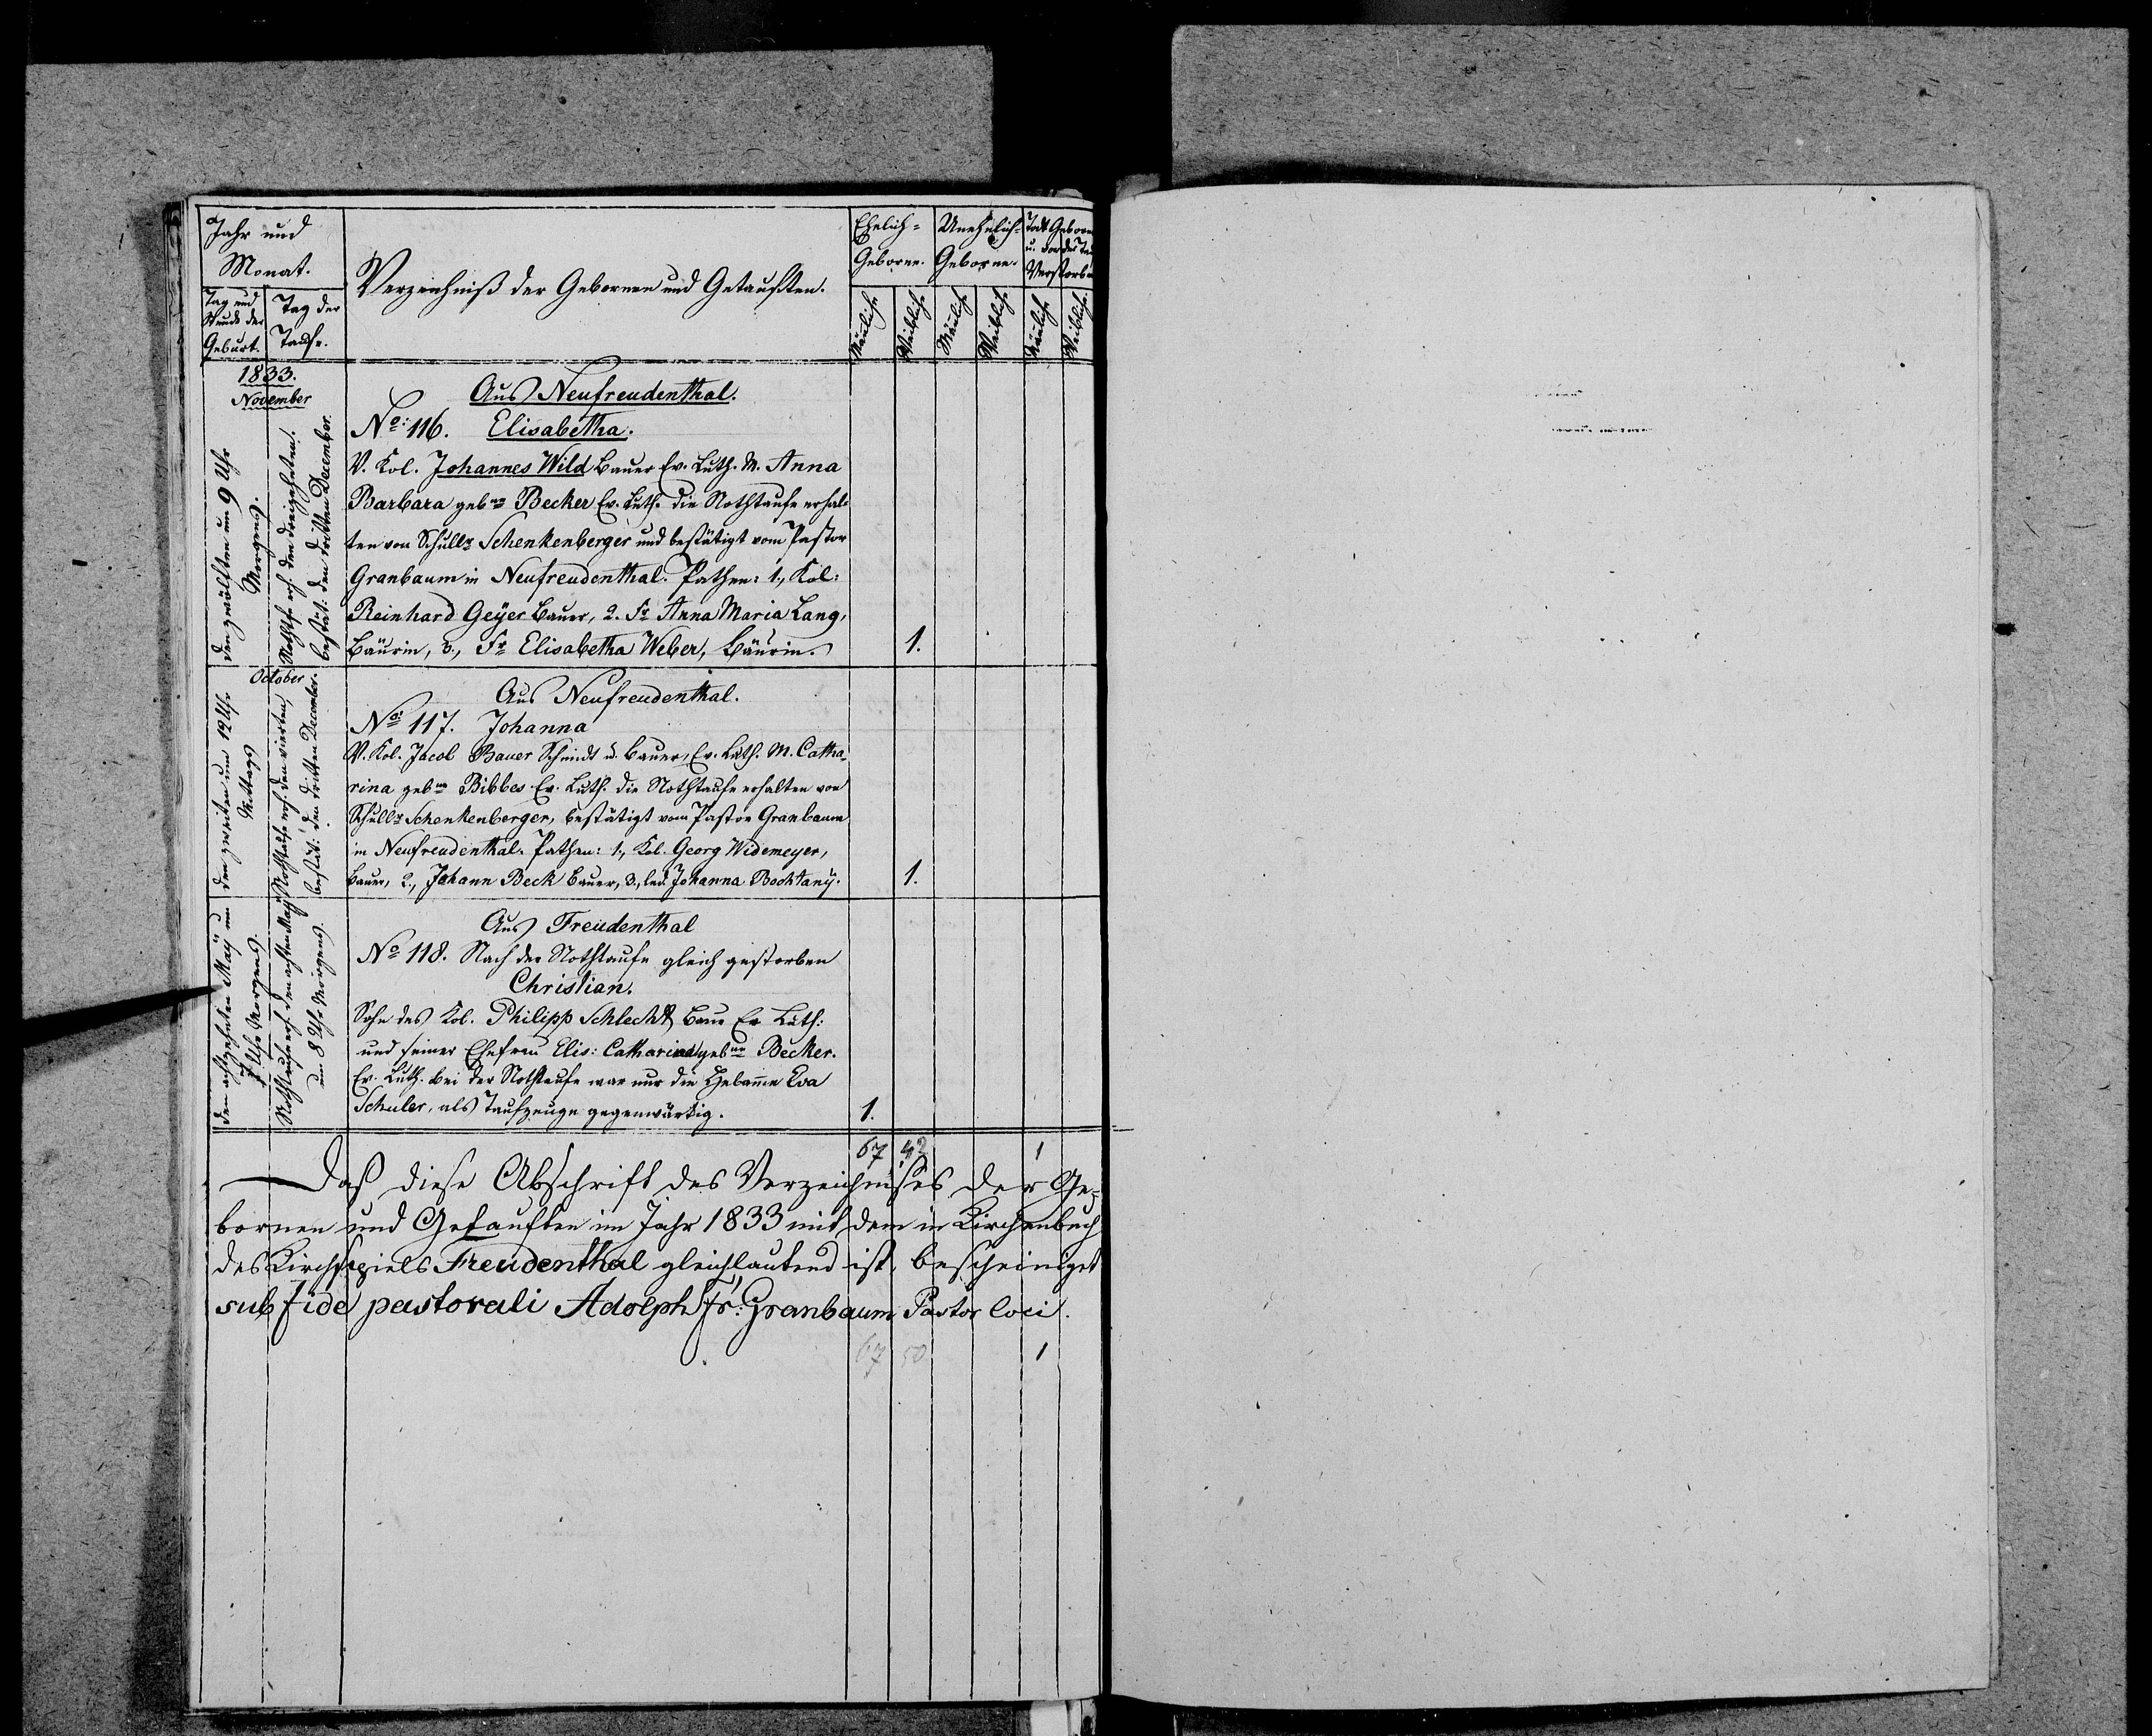 Jahr und
Monat.
Tag und
Stunde der
Geburt.
Tag der
Taufe.
Verzeichniß der Gebornen und Getauften.
Ehelich=
Geborne.
Unehelich=
Geborne.
Todt Geborne
u. vor der
Verstorbene
Mänlich.
Weiblich.
Mänlich.
Weiblich.
Mänlich.
Weiblich.
1833.
November
den zwölften um 9 Uhr
Morgens.
Nothtfe erh. den dreizehnten.
bestät. den dritten December.
Aus Neufreudenthal.
No: 116. Elisabetha.
V. Kol. Johannes Wild Bauer Ev. Luth. M. Anna
Barbara gebne Becker Ev. Luth. die Nothtaufe erhal=
ten von Schullr Schenkenberger und bestätigt vom Pastor
Granbaum in Neufreudenthal. Pathen: 1., Kol:
Reinhard Geÿer Bauer, 2. Fr Anna Maria Lang,
Bäurin, 3., Fr Elisabetha Weber, Bäurin.
1.
October
den zweiten um 12 Uhr
Mittags
Nothtaufe erh. den vierten,
bestät: den dritten December.
Aus Neufreudenthal.
No: 117. Johanna
V. Kol. Jacob Bauer Schmidt u. Bauer, Ev. Luth. M. Catha=
rina gebne Bibbes Ev. Luth. die Nothtaufe erhalten von
Schullr Schenkenberger, bestätigt vom Pastor Granbaum
in Neufreudenthal. Pathen: 1., Kol. Georg Widemeyer,
Bauer, 2., Johann Beck Bauer, 3., led. Johanna Bochtanÿ.
1.
den achtzehnten Maÿ um
7 Uhr Morgens.
Nothtaufe erh. den achten Maÿ
um 8 Uhr Morgens.
Aus Freudenthal
No 118. Nach der Nothtaufe gleich gestorben
Christian.
Sohn des Kol. Philipp Schlecht Baur Ev Luth:
und seiner Ehefrau Elis: Catharina gebne Becker.
Ev. Luth. Bei der Nothtaufe war nur die Hebamme Eva
Schuler, als Taufzeuge gegenwärtig.
1.
67 1
Daß diese Abschrift des Verzeichnißes der Ge=
bornen und Getauften im Jahr 1833 mit dem im Kirchenbuch
des Kirchspiels Freudenthal gleichlautend ist, bescheiniget
sub fide pastorali Adolph Fr: Granbaum Pastor loci.
67 50 1